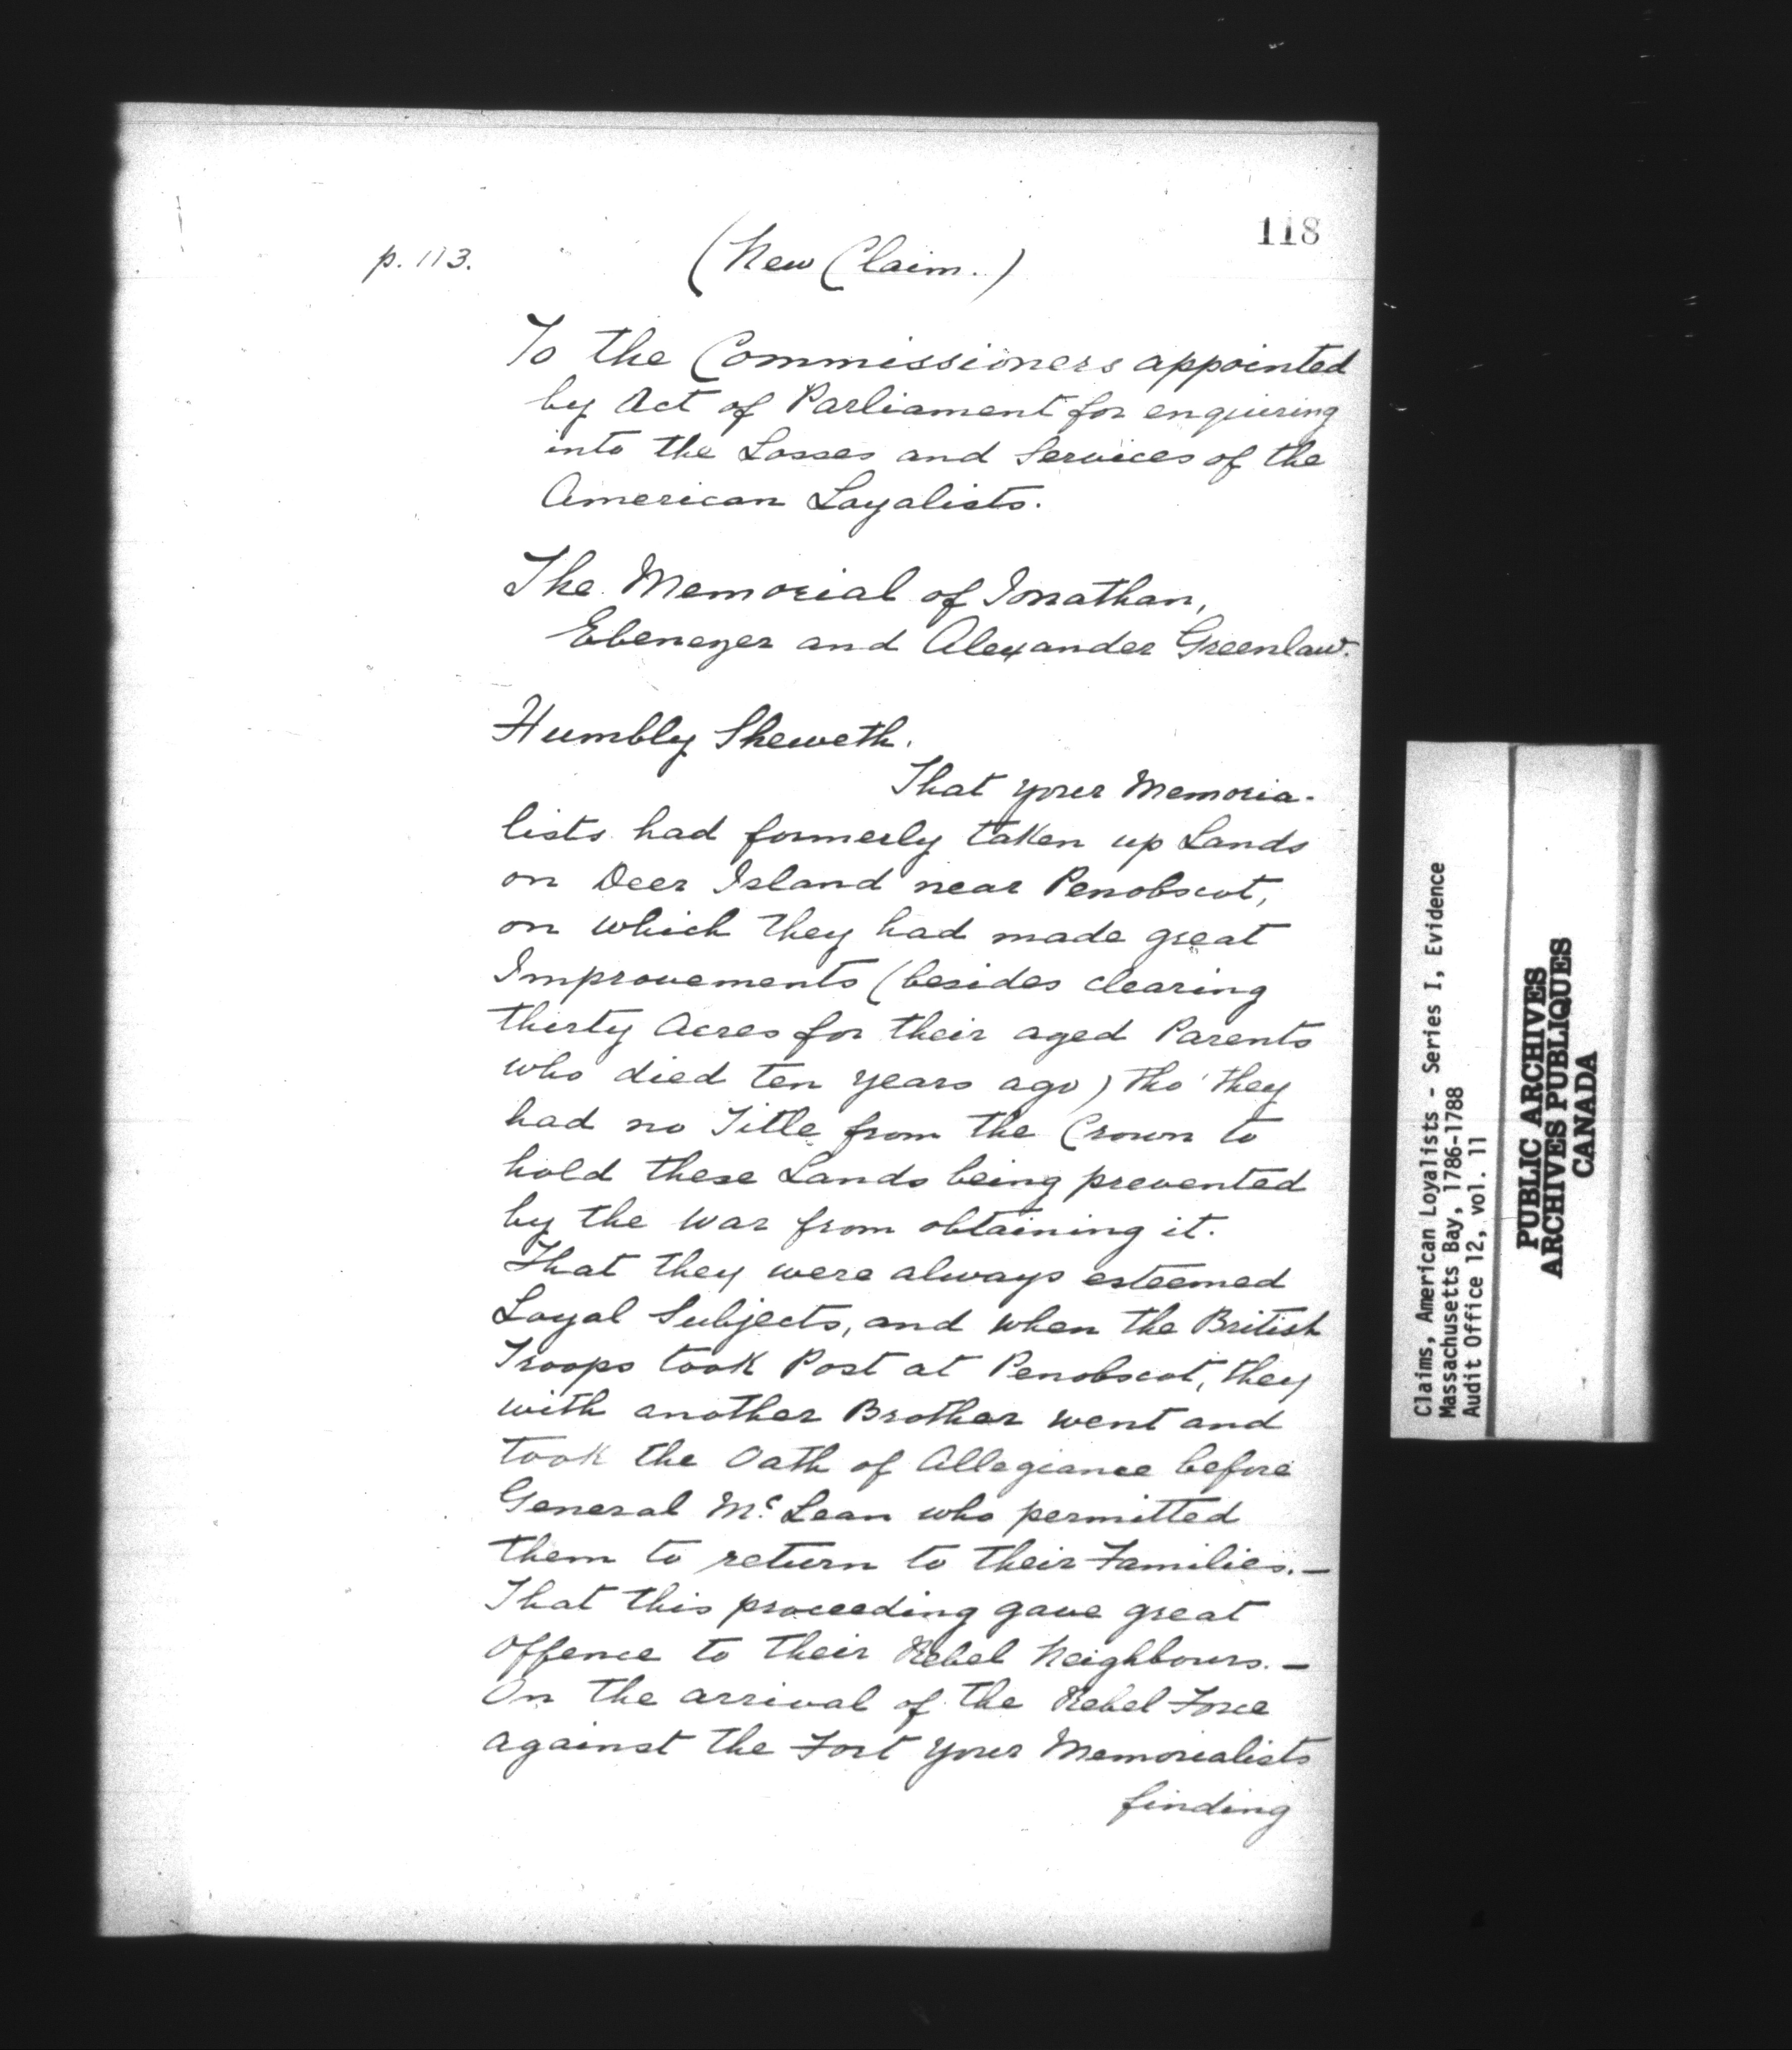 118
p. 113. (New Claim.)
To the Commissioners appointed
by Act of Parliament for enquiring
into the Losses and Services of the
American Loyalists.
The Memorial of Jonathan,
Ebenezer and Alexander Greenlaw.
Humbly Sheweth.
That your Memoria-
lists had formerly taken up Lands
on Deer Island near Penobscot,
on which they had made great
Improvements (besides clearing
thirty Acres for their aged Parents
who died ten years ago) tho' they
had no Title from the Crown to
hold these Lands being prevented
by the War from obtaining it.
That they were always esteemed
Loyal Subjects, and when the British
Troops took Post at Penobscot, they
with another Brother went and
took the Oath of Allegiance before
General Mc. Lean who permitted
them to return to their Families.—
That this proceeding gave great
Offence to their Rebel Neighbours.—
On the arrival of the Rebel Force
against the Fort your Memorialists
finding
Claims, American Loyalists - Series I, Evidence
Massachusetts Bay, 1786-1788
Audit Office 12, vol. 11
PUBLIC ARCHIVES
ARCHIVES PUBLIQUES
CANADA